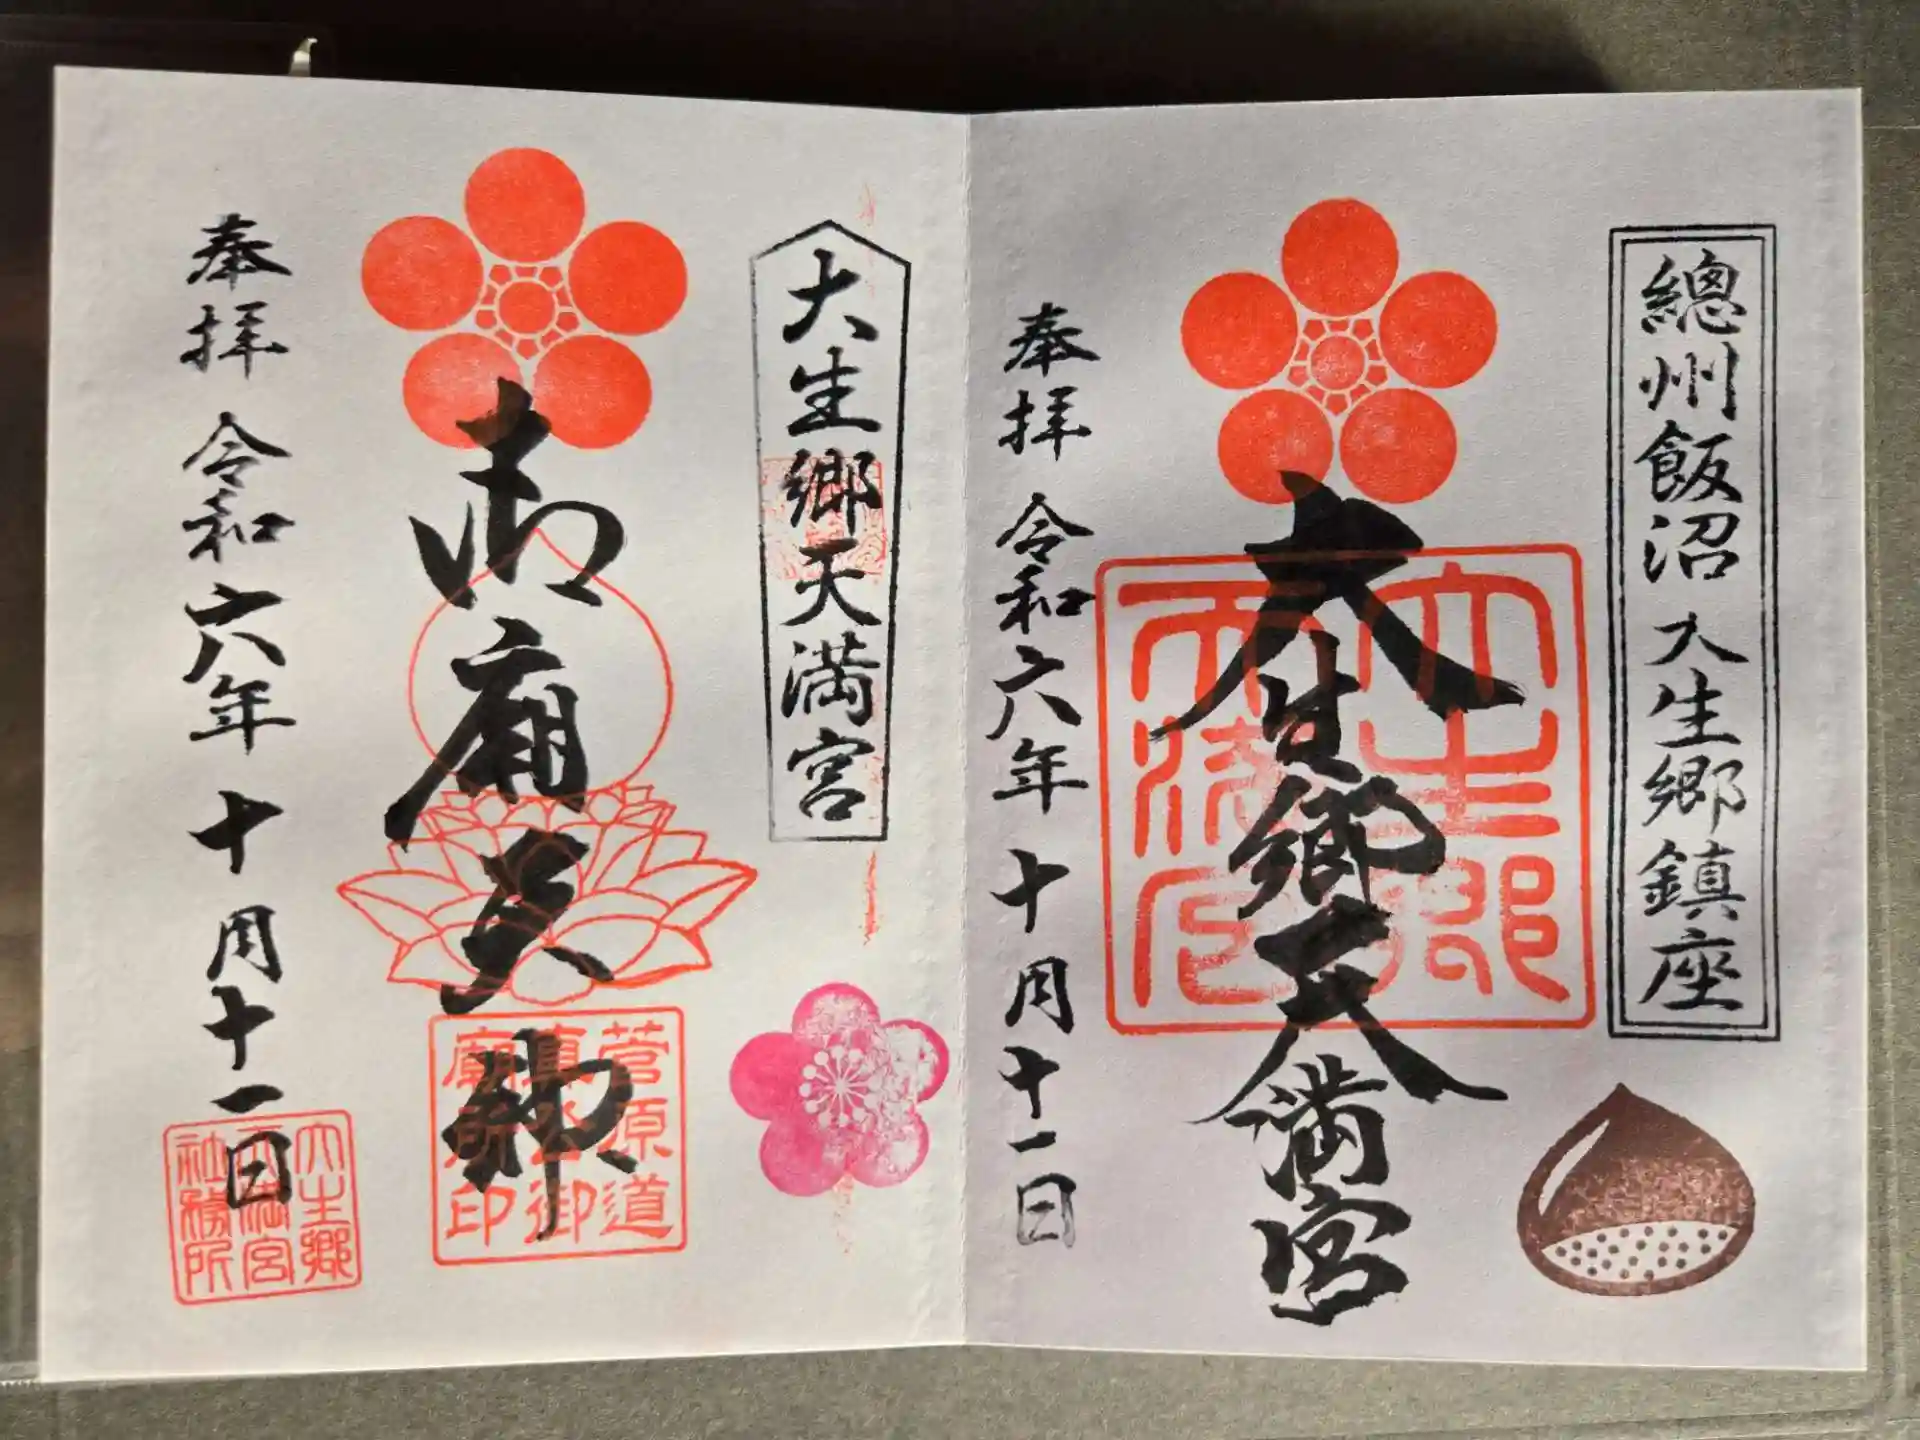 總州飯沼 大生郷鎮座
大生郷天満宮
奉拝 令和六年十月十一日
大生郷天満宮
御廟天神
菅原道
真公御
廟所印
奉拝 令和六年十月十一日
大生郷
天満宮
社務所